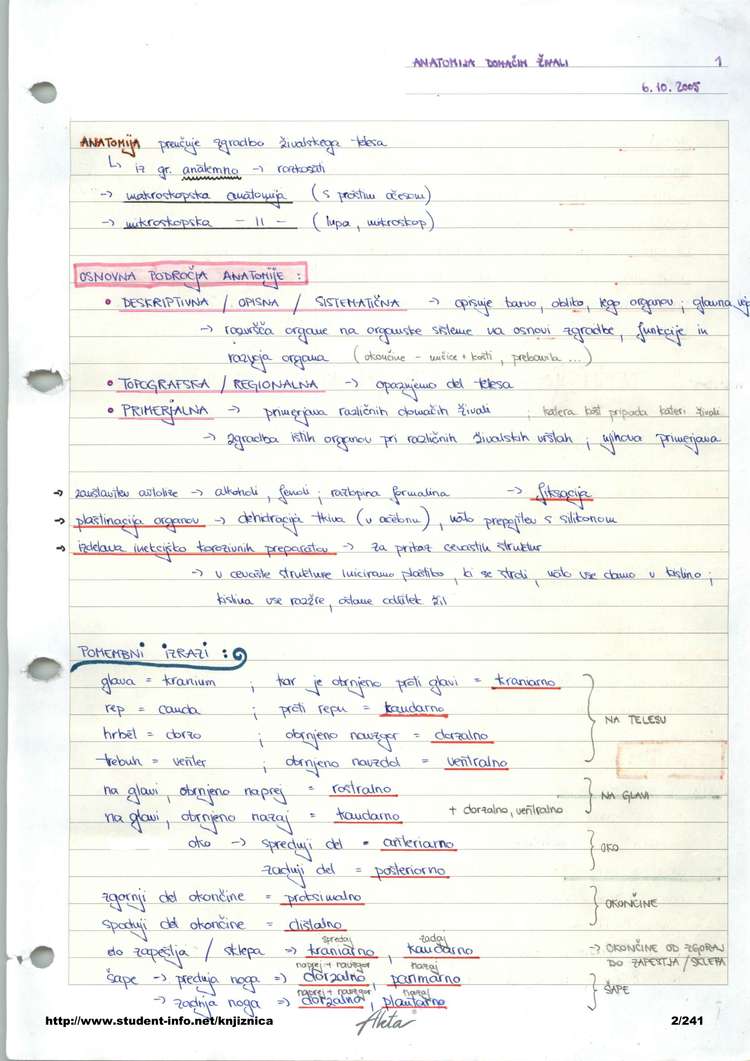 ANATOMIJA DOMAČIH ŽIVALI 1
6.10.2005
ANATOMIJA preučuje zgradbo živalskega telesa
↳ iz gr. analemno → razkosati
→ makroskopska anatomija (s prostim očesom)
→ mikroskopska - 11 - (lupa, mikroskop)
OSNOVNA PODROČJA ANATOMIJE :
• DESKRIPTIVNA / OPISNA / SISTEMATIČNA → opisuje barvo, obliko, lego organov ; glavna
→ razvršča organe na organske sisteme na osnovi zgradbe, funkcije in
razvoja organa (okončine - mišice + kosti, prebavila ...)
• TOPOGRAFSKA / REGIONALNA → opazujemo del telesa
• PRIMERJALNA → primerjava različnih domačih živali ; katera kost pripada kateri živali
→ zgradba istih organov pri različnih živalskih vrstah ; njihova primerjava
→ zaustavitev avtolize → alkoholi, fenoli ; raztopina formalina → fiksacija
→ plastinacija organov → dehidracija tkiva (v acetonu), nato prepojitev s silikonom
→ izdelava inekcijsko korozivnih preparatov → za prikaz cevastih struktur
→ v cevaste strukture iniciramo plastiko, ki se strdi, nato vse damo v kislino ;
kislina vse razžre, ostane odlitek žil
POMEMBNI IZRAZI :
glava = kranium ; kar je obrnjeno proti glavi = kraniarno
rep = cauda ; proti repu = kaudarno
NA TELESU
hrbet = dorzo ; obrnjeno navzgor = dorzalno
trebuh = venter ; obrnjeno navzdol = ventralno
na glavi, obrnjeno naprej = rostralno
NA GLAVI
na glavi, obrnjeno nazaj = kaudarno + dorzalno, ventralno
oko → sprednji del = anteriarno
OKO
zadnji del = posteriorno
zgornji del okončine = proksimalno
OKONČINE
spodnji del okončine = distalno
spredaj zadaj
do zapestja / sklepa → kraniarno, kaudarno → OKONČINE OD ZGORAJ
DO ZAPESTJA / SKLEPA
naprej + navzgor nazaj
šape → prednja noga → dorzalno, parimarno
ŠAPE
naprej + navzgor nazaj
→ zadnja noga → dorzalno, plantarno
http://www.student-info.net/knjiznica Akta 2/241